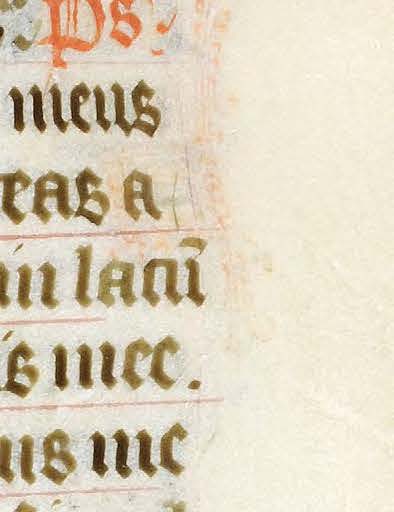 Ps
meus
ceas a
in lacū
is mee.
us me